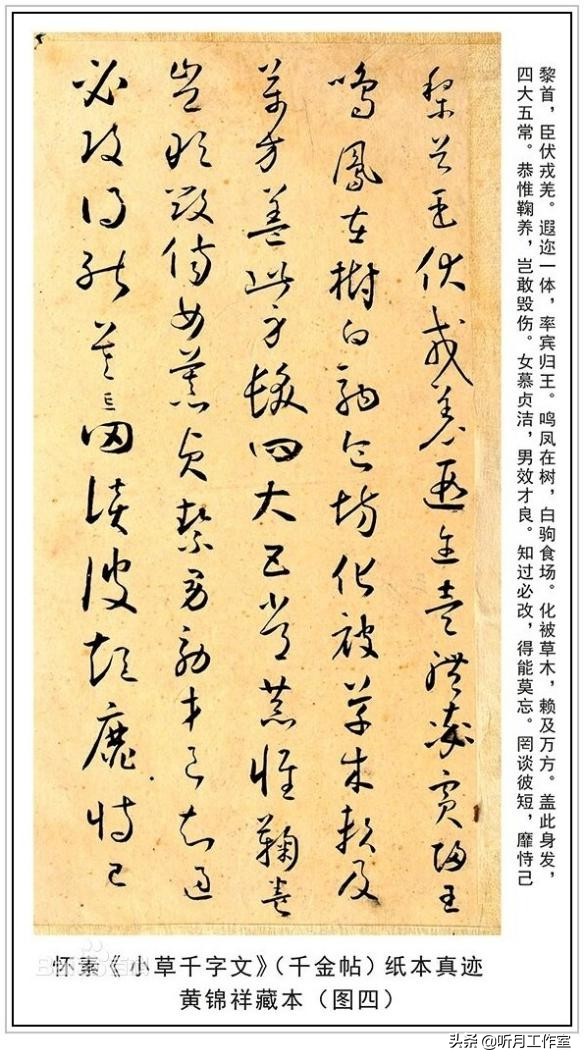 黎首，臣伏戎羌。遐迩一体，率宾归王。鸣凤在树，白驹食场。化被草木，赖及万方。盖此身发，
四大五常。恭惟鞠养，岂敢毁伤。女慕贞洁，男效才良。知过必改，得能莫忘。罔谈彼短，靡恃己
黎首臣伏戎羌遐迩壹體率賓歸王
鳴鳳在樹白駒食場化被草木賴及
萬方蓋此身髮四大五常恭惟鞠養
豈敢毀傷女慕貞絜男效才良知過
必改得能莫忘罔談彼短靡恃己
怀素《小草千字文》（千金帖）纸本真迹
黄锦祥藏本（图四）
头条 @听月工作室